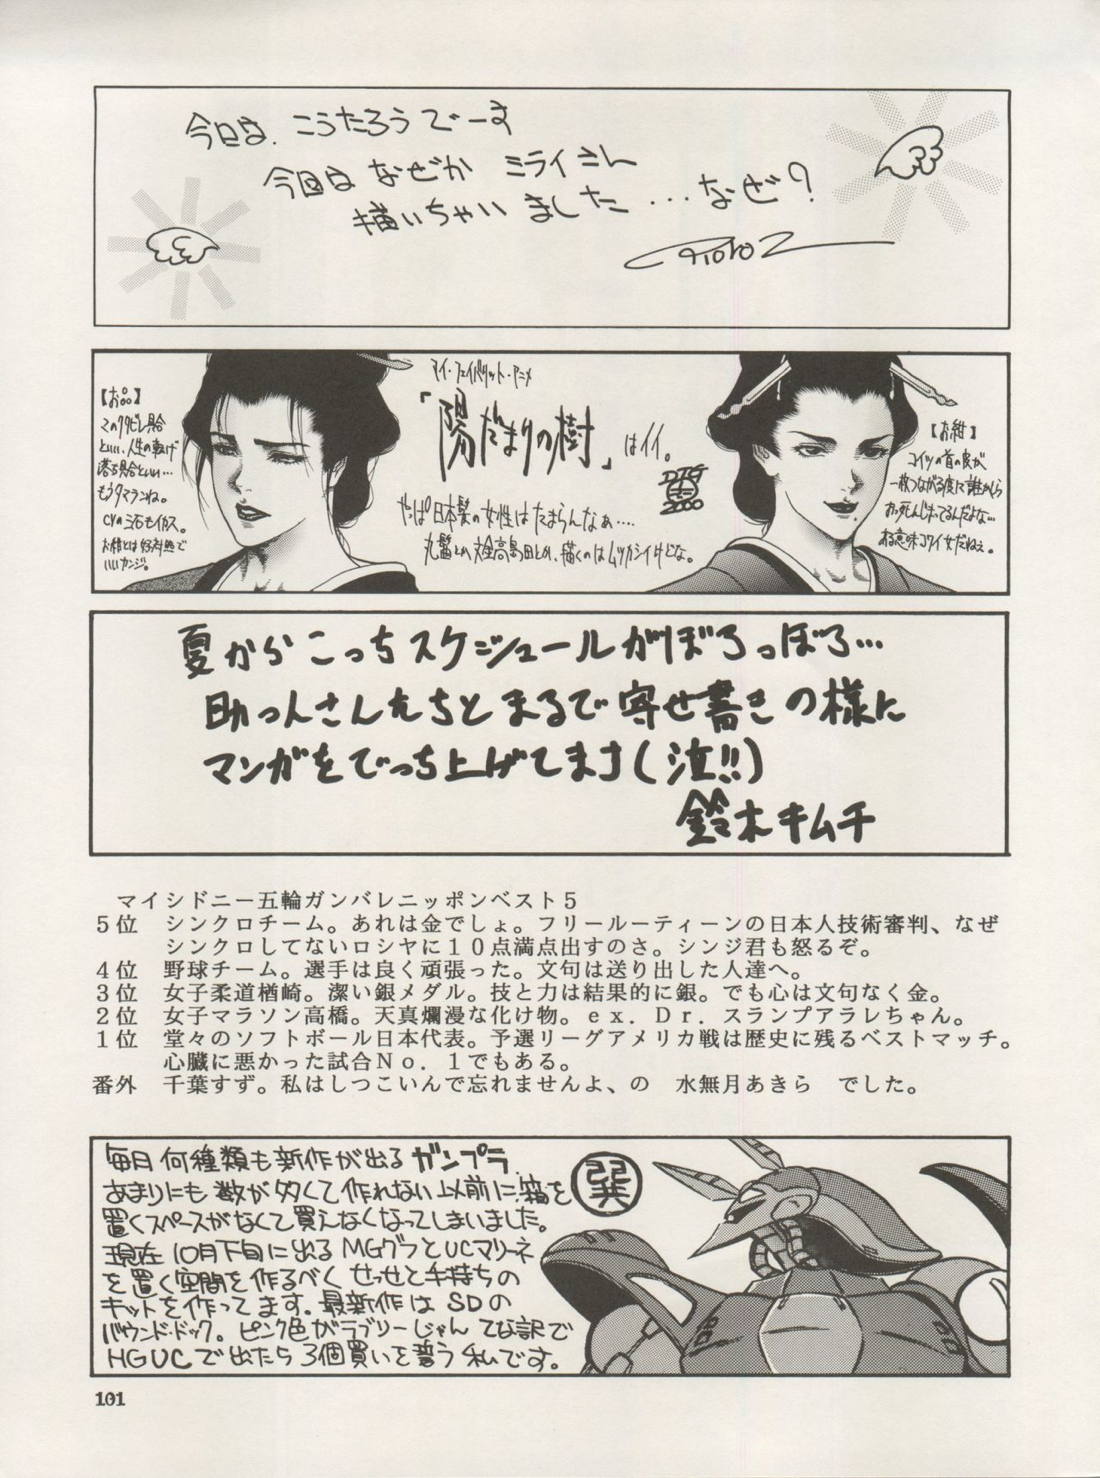 今日は、こうたろうでーす
今回はなぜか ミライさん
描いちゃいました…なぜ?
マイ・フェイバリット・アニメ
「陽だまりの樹」はイイ。
DTG
2000
やっぱ日本髪の女性はたまらんなぁ….
丸髷との文金高島田との、描くのはムツカシイけどな。
【お品】
このクタビレ具合
といい、人生の転げ
落ち具合といい…
もうタマランね。
CVの三石もイカス。
お紺とは好対照で
いいカンジ。
【お紺】
コイツの首の皮が
一枚つながる度に誰かしら
おっ死んじまってるんだよな…
ある意味コワイ女だねぇ。
夏からこっちスケジュールがぼろっぼろ…
助っ人さんたちとまるで寄せ書きの様に
マンガをでっち上げてます(泣!!)
鈴木キムチ
マイシドニー五輪ガンバレニッポンベスト5
5位 シンクロチーム。あれは金でしょ。フリールーティーンの日本人技術審判、なぜ
シンクロしてないロシヤに10点満点出すのさ。シンジ君も怒るぞ。
4位 野球チーム。選手は良く頑張った。文句は送り出した人達へ。
3位 女子柔道楢崎。潔い銀メダル。技と力は結果的に銀。でも心は文句なく金。
2位 女子マラソン高橋。天真爛漫な化け物。ex.Dr.スランプアラレちゃん。
1位 堂々のソフトボール日本代表。予選リーグアメリカ戦は歴史に残るベストマッチ。
心臓に悪かった試合No.1でもある。
番外 千葉すず。私はしつこいんで忘れませんよ、の 水無月あきら でした。
毎月何種類も新作が出るガンプラ
あまりにも数が多くて作れない以前に箱を
置くスペースがなくて買えなくなってしまいました。
現在10月下旬に出るMGグフとUCマリーネ
を置く空間を作るべくせっせと手持ちの
キットを作ってます。最新作はSDの
バウンド・ドック。ピンク色がラブリーじゃん てな訳で
HGUCで出たら3個買いを誓う私です。
巽
101